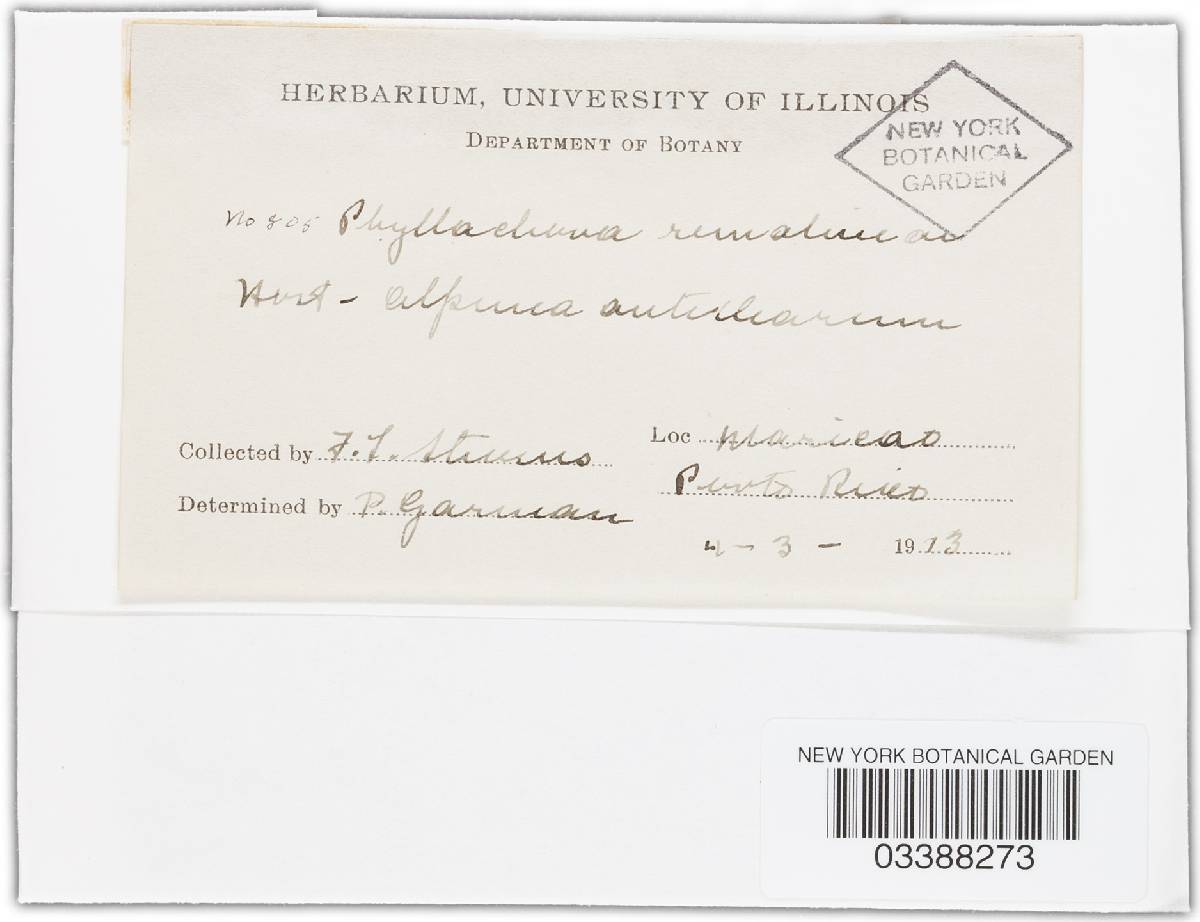 HERBARIUM, UNIVERSITY OF ILLINOIS
DEPARTMENT OF BOTANY
NEW YORK
BOTANICAL
GARDEN
No 805 Phyllachora
Host - Alpinia antillarum
Collected by F. L. Stevens
Loc Maricao
Porto Rico
Determined by P. Garman
4 - 3 - 1913
NEW YORK BOTANICAL GARDEN
03388273